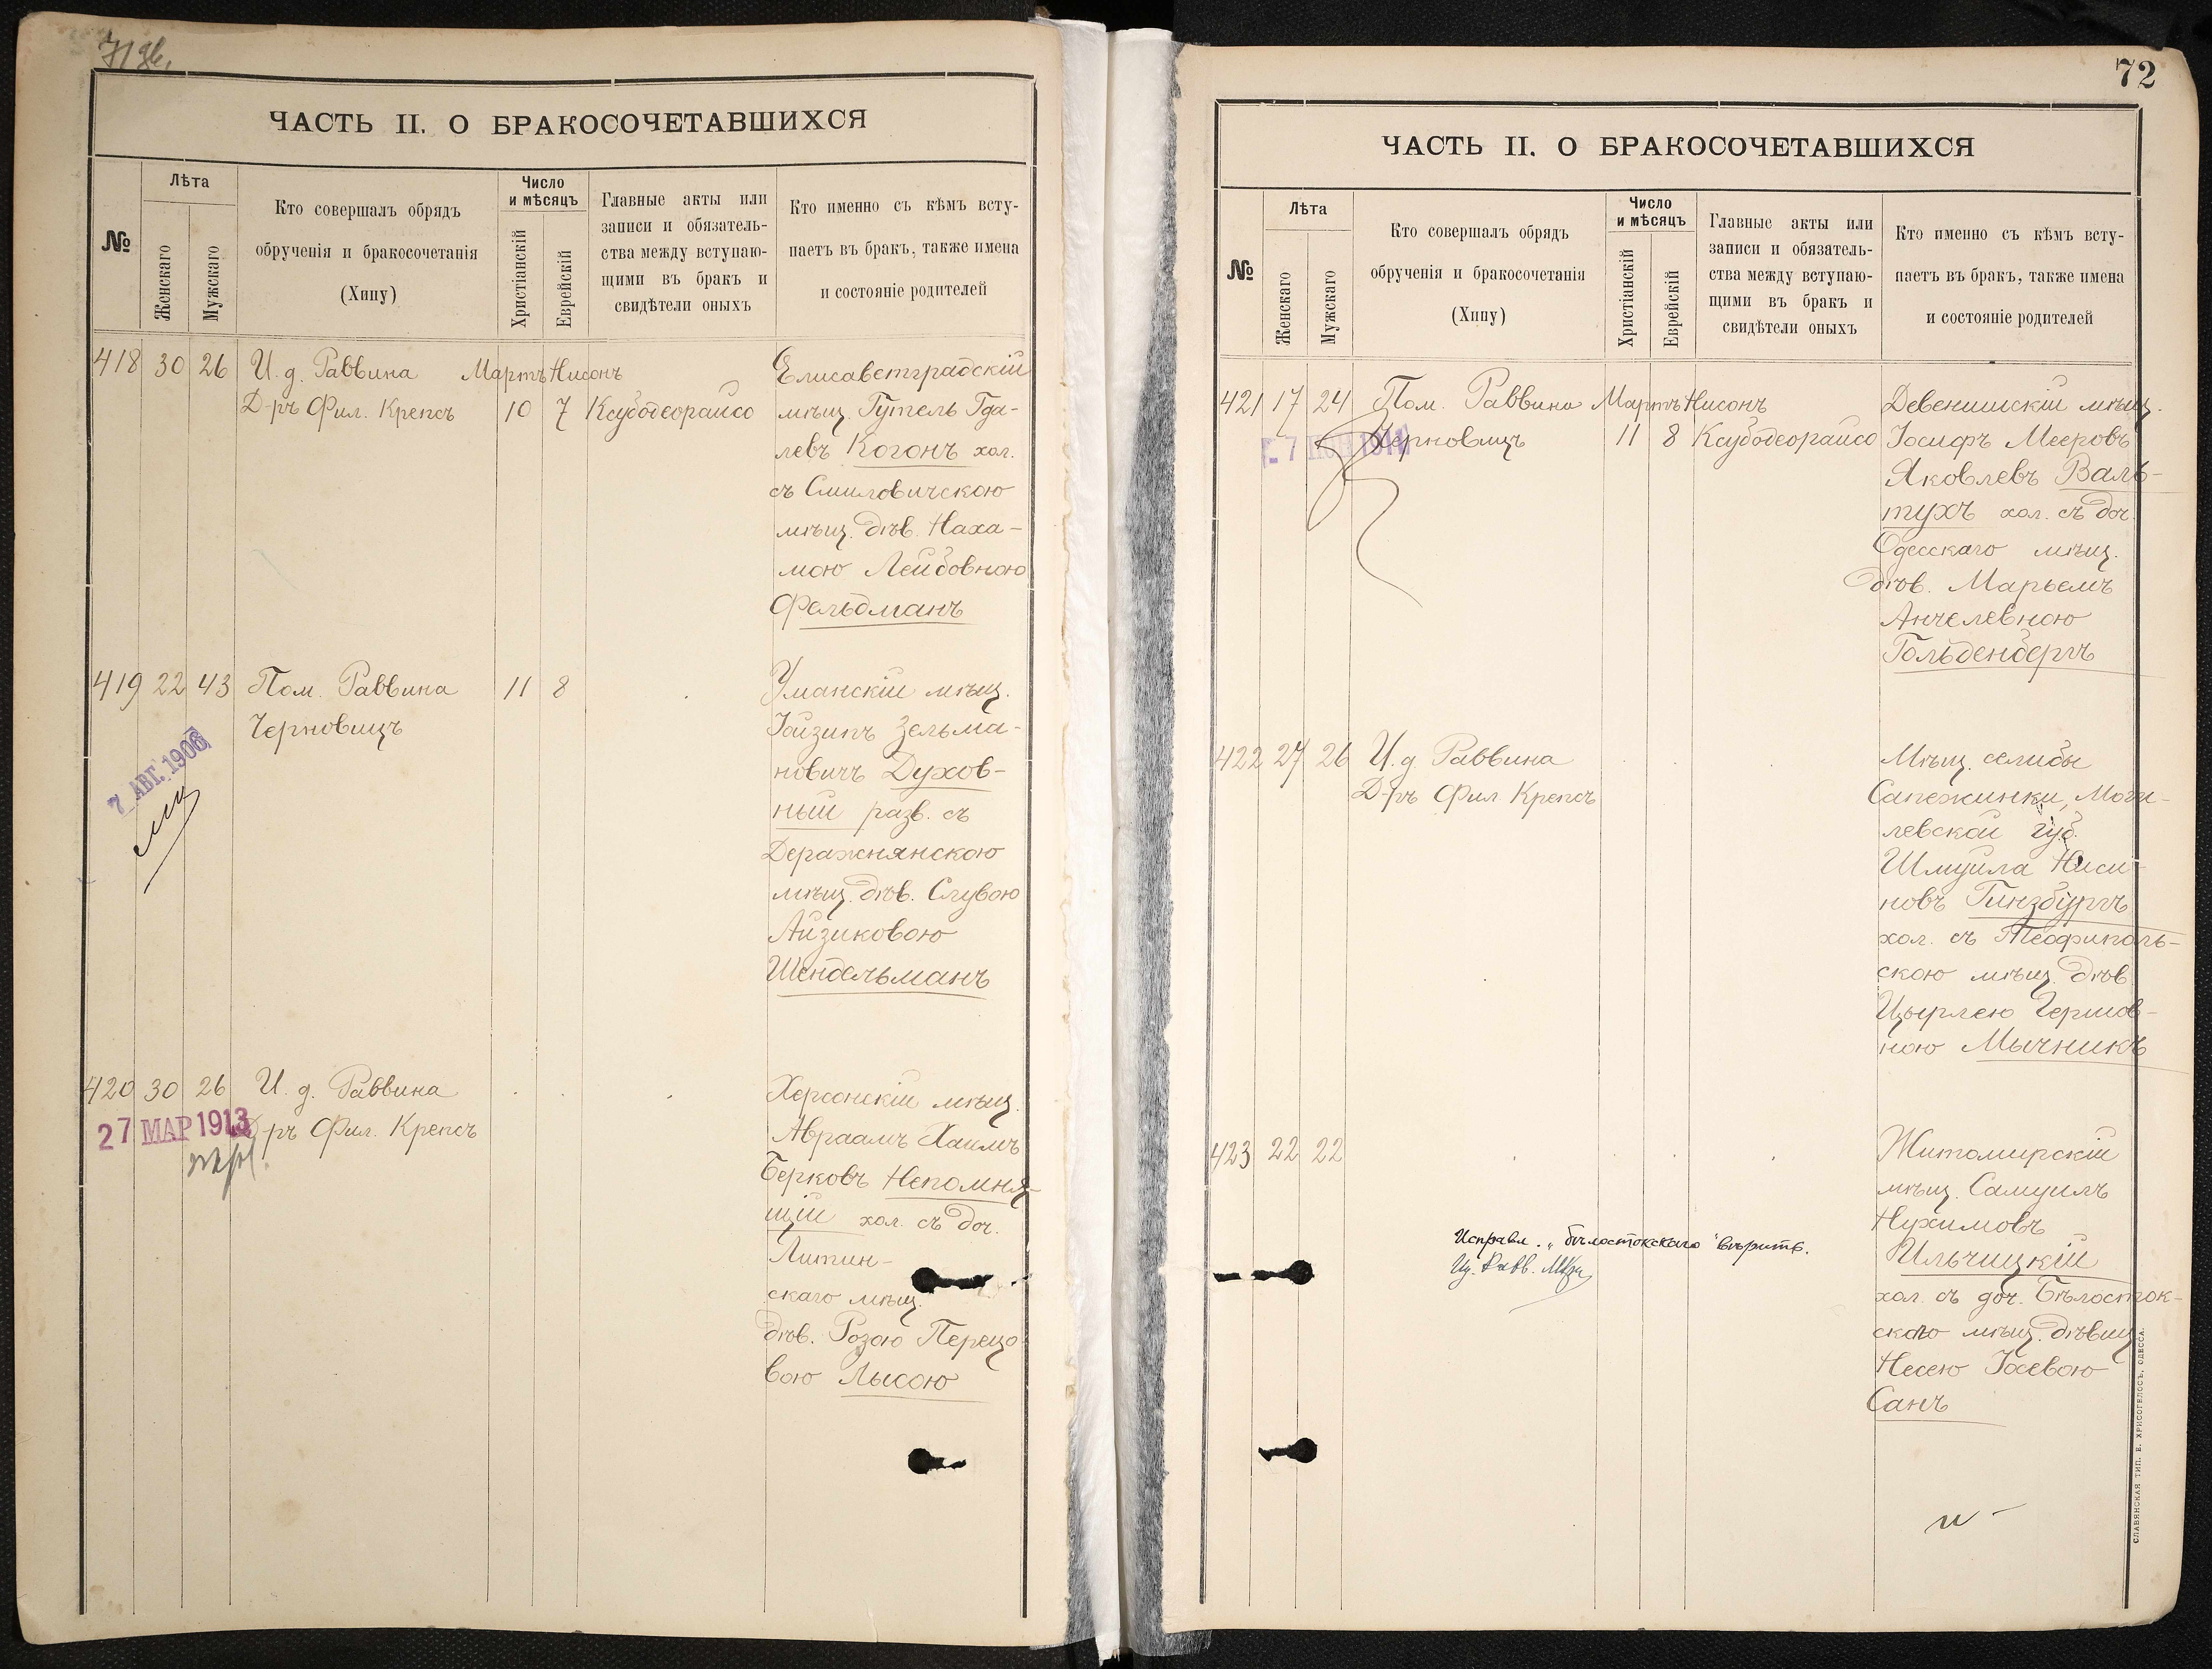 ЧАСТЬ II. О БРАКОСОЧЕТАВШИХСЯ
№
Лѣта
Женскаго
Мужскаго
Кто совершалъ обрядъ
обрученія и бракосочетанія
(Хипу)
Число
и мѣсяцъ
Христіанскій
Еврейскій
Главные акты или
записи и обязатель-
ства между вступаю-
щими въ бракъ и
свидѣтели оныхъ
Кто именно съ кѣмъ всту-
паетъ въ бракъ, также имена
и состояніе родителей
418 30 26 И. д. Раввина Мартъ Нисонъ
Д-ръ Фил. Крепсъ 10 7 Ксубодеорайсо
Елисаветградскій
мѣщ. Гутель Гда-
левъ Когонъ хол.
съ Смиловичскою
мѣщ. дѣв. Наха-
мою Лейбовною
Фельдманъ
419 22 43 Пом. Раввина 11 8
Черновицъ
7 АВГ. 1906
Уманскій мѣщ.
Іойзипъ Зельма-
новичъ Духов-
ный разв. съ
Деражнянскою
мѣщ. дѣв. Слувою
Айзиковою
Шендельманъ
420 30 26 И. д. Раввина
27 МАР 1913
Д-ръ Фил. Крепсъ
Херсонскій мѣщ.
Авраамъ Хаимъ
Берковъ Непомня-
щій хол. съ доч.
Литин-
скаго мѣщ.
дѣв. Розою Перецо-
вою Лысою
72
ЧАСТЬ II. О БРАКОСОЧЕТАВШИХСЯ
№
Лѣта
Женскаго
Мужскаго
Кто совершалъ обрядъ
обрученія и бракосочетанія
(Хипу)
Число
и мѣсяцъ
Христіанскій
Еврейскій
Главные акты или
записи и обязатель-
ства между вступаю-
щими въ бракъ и
свидѣтели оныхъ
Кто именно съ кѣмъ всту-
паетъ въ бракъ, также имена
и состояніе родителей
421 17 24 Пом. Раввина Мартъ Нисонъ
Черновицъ 11 8 Ксубодеорайсо
Девенишскій мѣщ.
Іосифъ Мееровъ
Яковлевъ Валь-
тухъ хол. съ доч.
Одесскаго мѣщ.
дѣв. Марьемъ
Анчелевною
Гольденбергъ
422 27 26 И. д. Раввина
Д-ръ Фил. Крепсъ
Мѣщ. селибы
Сапежинки, Моги-
левской губ.
Шмуила Ниси-
новъ Гинзбургъ
хол. съ Теофиполь-
скою мѣщ. дѣв.
Цырлею Гершов-
ною Мычникъ
423 22 22
Житомирскій
мѣщ. Самуилъ
Нухимовъ
Ильчицкій
хол. съ доч. Бѣлосток-
скаго мѣщ. дѣвиц.
Несею Іосевою
Санъ
Исправл. "бѣлостокскаго" вѣрить.
СЛАВЯНСКАЯ ТИП. Е. ХРИСОГЕЛОСЪ, ОДЕССА.